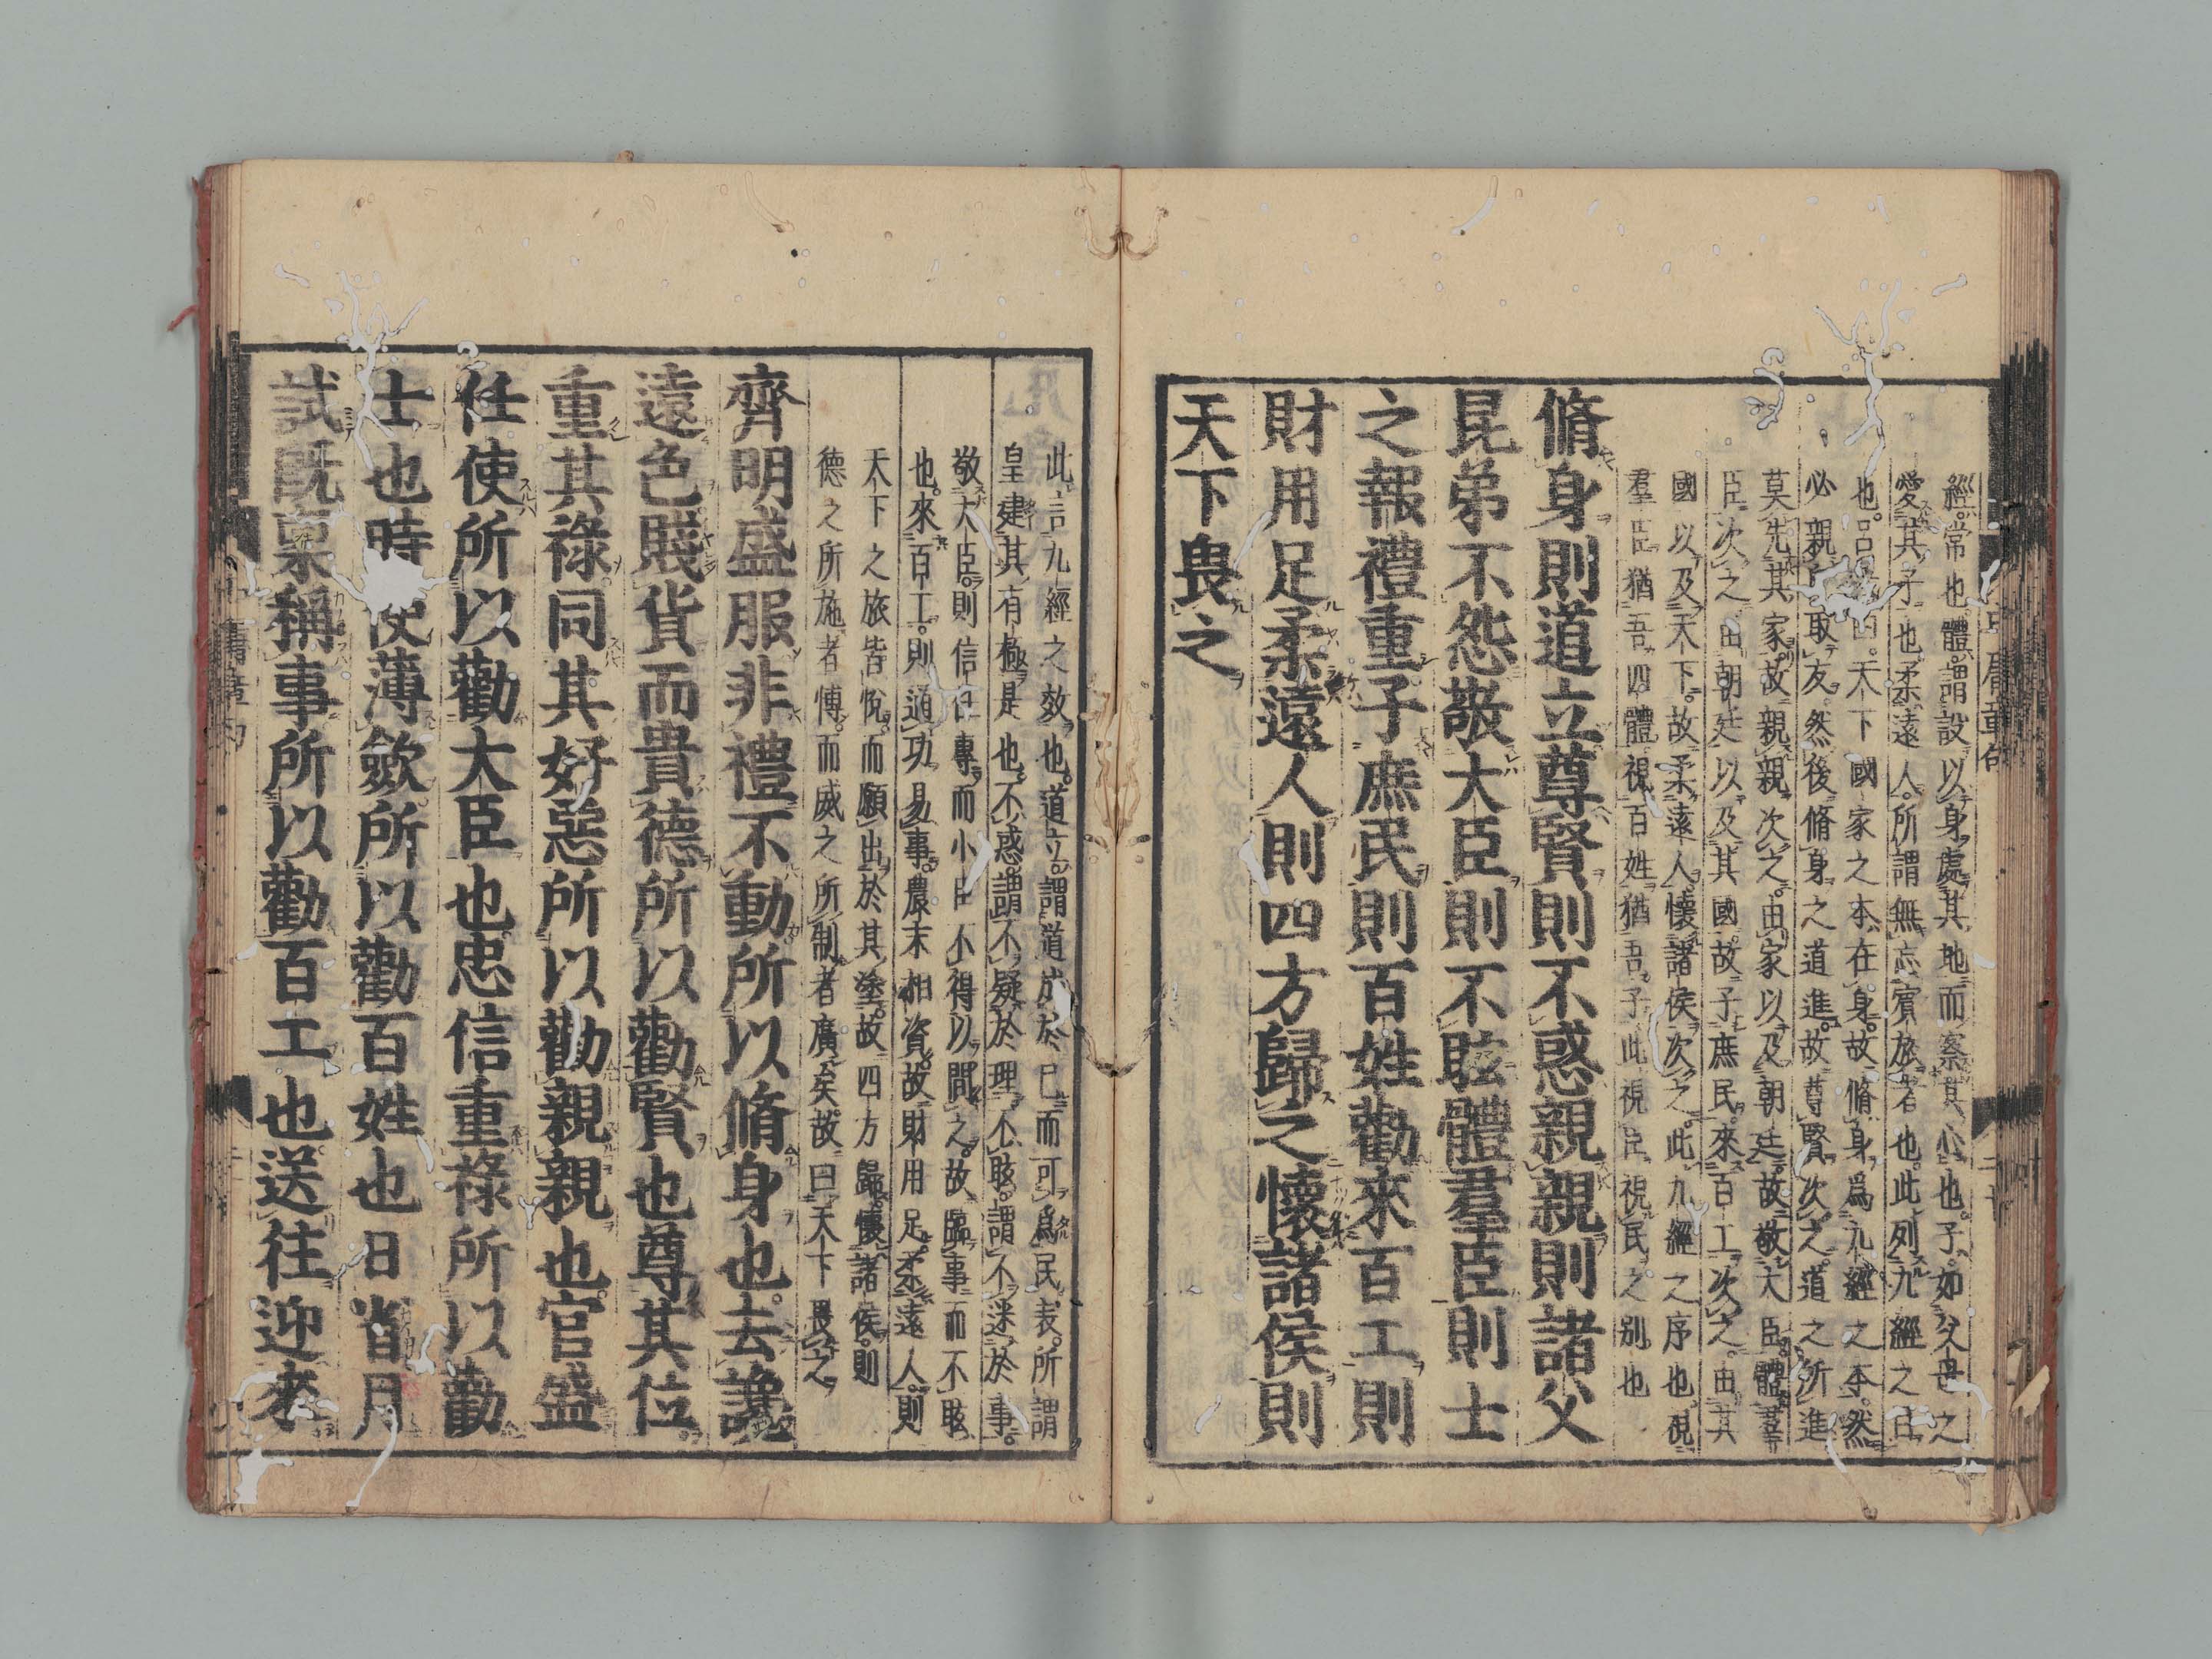 經常也體謂設以身處其地而察其心也子如父母之
愛其子也柔遠人所謂無忘賓旅者也此列九經之
也呂 天下國家之本在身故脩身爲九經之本然
必親 取友然後脩身之道進故尊賢次之道之所進
莫先其家故親親次之由家以及朝廷故敬大臣體羣
臣次之由朝廷以及其國故子庶民來百工次之由其
國以及天下故柔遠人懷諸侯次之此九經之序也視
羣臣猶吾四體視百姓猶吾子此視臣視民之別也
脩身則道立尊賢則不惑親親則諸父
昆弟不怨敬大臣則不眩體羣臣則士
之報禮重子庶民則百姓勸來百工則
財用足柔遠人則四方歸之懷諸侯則
天下畏之
此言九經之效也道立謂道成於己而可爲民表所謂
皇建其有極是也不惑謂不疑於理不眩謂不迷於事
敬大臣則信任專而小臣不得以間之故臨事而不眩
也來百工則通功易事農末相資故財用足柔遠人則
天下之旅皆悅而願出於其塗故四方歸懷諸侯則
德之所施者博而威之所制者廣矣故曰天下畏之
齊明盛服非禮不動所以脩身也去讒
遠色賤貨而貴德所以勸賢也尊其位
重其祿同其好惡所以勸親親也官盛
任使所以勸大臣也忠信重祿所以勸
士也時使薄斂所以勸百姓也日省月
試既稟稱事所以勸百工也送往迎來